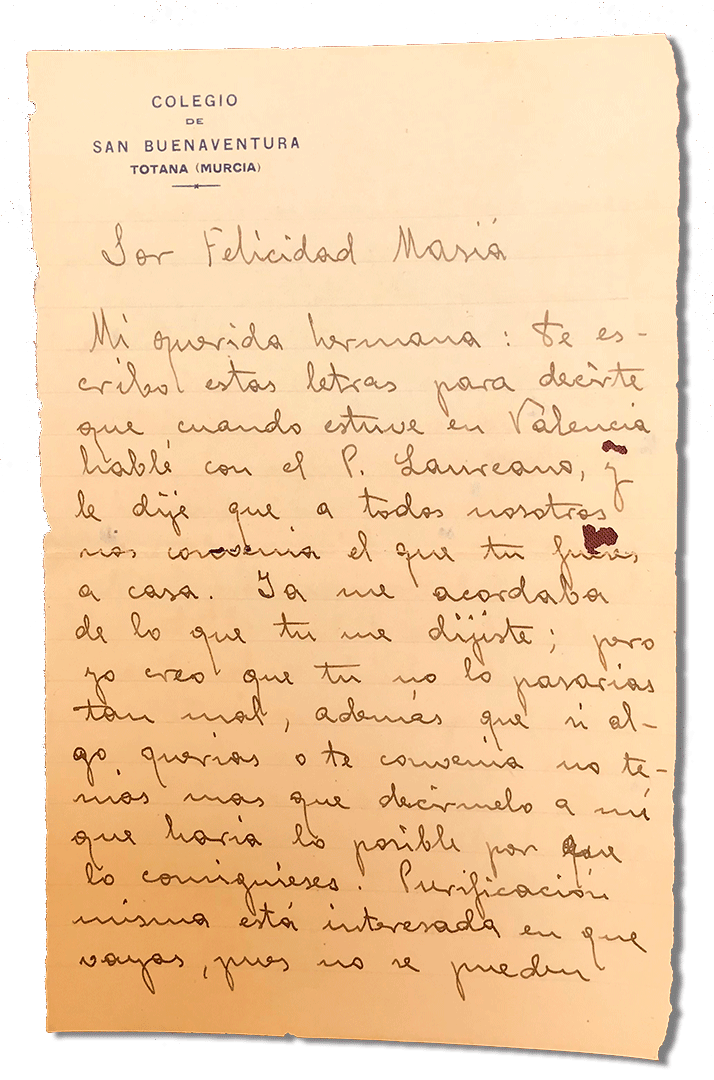 COLEGIO
DE
SAN BUENAVENTURA
TOTANA (MURCIA)
Sor Felicidad Masiá
Mi querida hermana: te es-
cribo estas letras para decirte
que cuando estuve en Valencia
hablé con el P. Laureano, y
le dije que a todos nosotros
nos convenia el que tu fueses
a casa. Ya me acordaba
de lo que tu me dijiste; pero
yo creo que tu no lo pasarias
tan mal, además que si al-
go querias o te convenia no te-
nias mas que decírmelo a mí
que haria lo posible por que
lo consiguieses. Purificación
misma está interesada en que
vayas, pues no se pueden